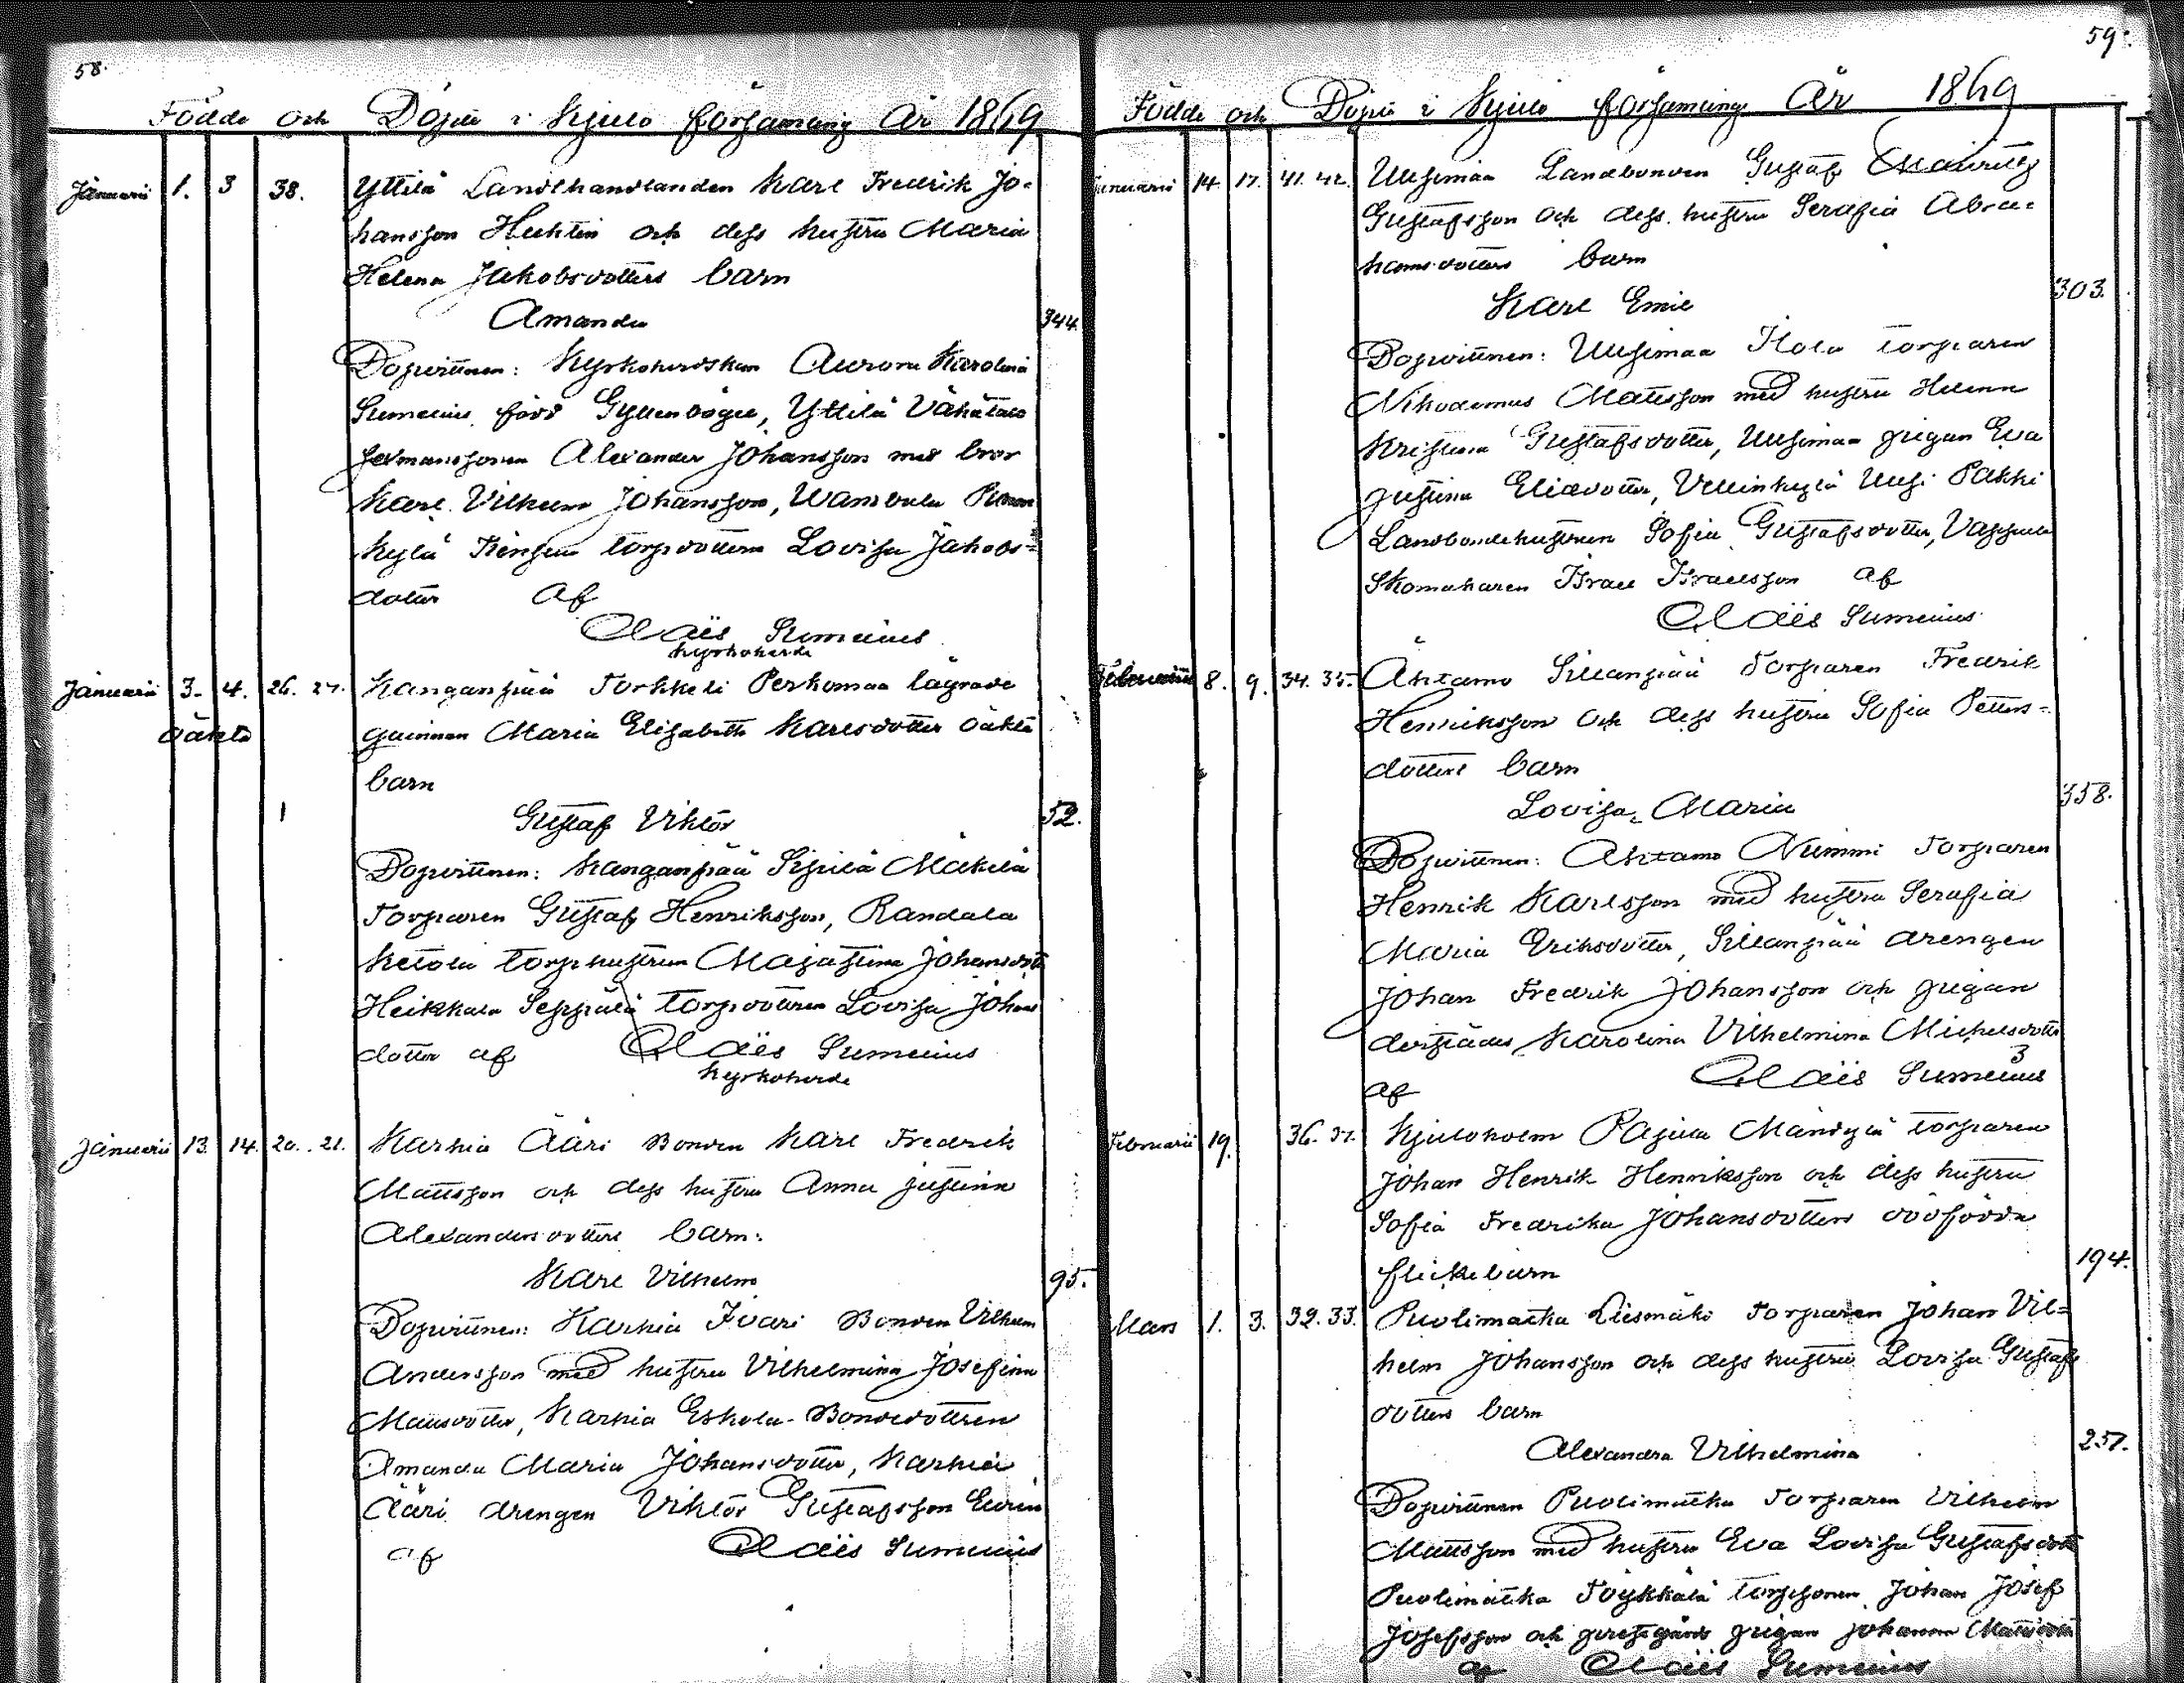 58.
Födde och Döpte i Kjulo församling År 1869
Januarii 1. 3 38. Yttilä Landthandlanden Karl Fredrik Jo-
hansson Huhtin och dess hustru Maria
Helena Jakobsdotters barn
Amanda 344.
Dopvittnen: Kyrkoherdskan Aurora Karolina
Sumelius född Gyllenbögel, Yttilä Vähätalo
sexmanssonen Alexander Johansson med bror
Karl Vilhelm Johansson, Wambula
kylä torpdottern Lovisa Jakobs-
dotter af
Claës Sumelius
kyrkoherde
Januarii 3. 4. 26. 27. Kanganpää Torkkeli Perkomaa lägrade
qvinnan Maria Elisabeth Karlsdotter oäkta
oäkta
barn
1 Gustaf Viktor 52.
Dopvittnen: Kanganpää Sipilä Mäkilä
Torparen Gustaf Henriksson, Randala
Ketola torphustrun Maja Stina Johansdott
Heikkala Seppälä torpdottren Lovisa Johans
dotter af Claës Sumelius
kyrkoherde
Januarii 13. 14. 20. 21. Karhia Ääri Bonden Karl Fredrik
Mattsson och dess hustru Anna Justina
Alexandersdotters barn:
Karl Vilhelm 95.
Dopvittnen: Karhia Ivari Bonden Vilhelm
Andersson med hustru Vilhelmina Josefina
Mattsdotter, Karhia Eskola Bondedottren
Amanda Maria Johansdotter, Karhia
Ääri drengen Viktor Gustafsson
af Claës Sumelius
59.
Födde och Döpte i Kjulo församling År 1869
Januarii 14. 17. 41. 42. Uusimaa Landbonden Gustaf
Gustafsson och dess hustru Serafia Abra-
hamsdotters barn
Karl Emil 303.
Dopvittnen: Uusimaa Ilola torparen
Nikodemus Mattsson med hustru Helena
Kristina Gustafsdotter, Uusimaa pigan Eva
Justina Eliedotter, Vellinkylä Uusi Pakki
Landbondehustrun Sofia Gustafsdotter,
Skomakaren Israel Israelsson af
Claës Sumelius
Februarii 8. 9. 34. 35. Ähtamo Sillanpää Torparen Fredrik
Henriksson och dess hustru Sofia Petters-
dotters barn
Lovisa Maria 358.
Dopvittnen: Ahtamo Nummi Torparen
Henrik Karlsson med hustru Serafia
Maria Eriksdotter, Sillanpää drengen
Johan Fredrik Johansson och pigan
derstädes Karolina Vilhelmina Michelsdotter
3
af Claës Sumelius
Februarii 19. 36. 37. Kjuloholm Pajula Mändylä torparen
Johan Henrik Henriksson och dess hustru
Sofia Fredrika Johansdotters dödfödda
flickebarn 194.
Mars 1. 3. 32. 33. Puolimatka Liesmäki Torparen Johan Vil-
helm Johansson och dess hustru Lovisa Gustafs
dotters barn
Alexandra Vilhelmina 257.
Dopvittnen Puolimatka Torparen Vilhelm
Mattsson med hustru Eva Lovisa Gustafsdott
Puolimatka Töykkälä torpsonen Johan Josef
Josefsson och prestgårds pigan Johanna Mattsdotter
af Claës Sumelius